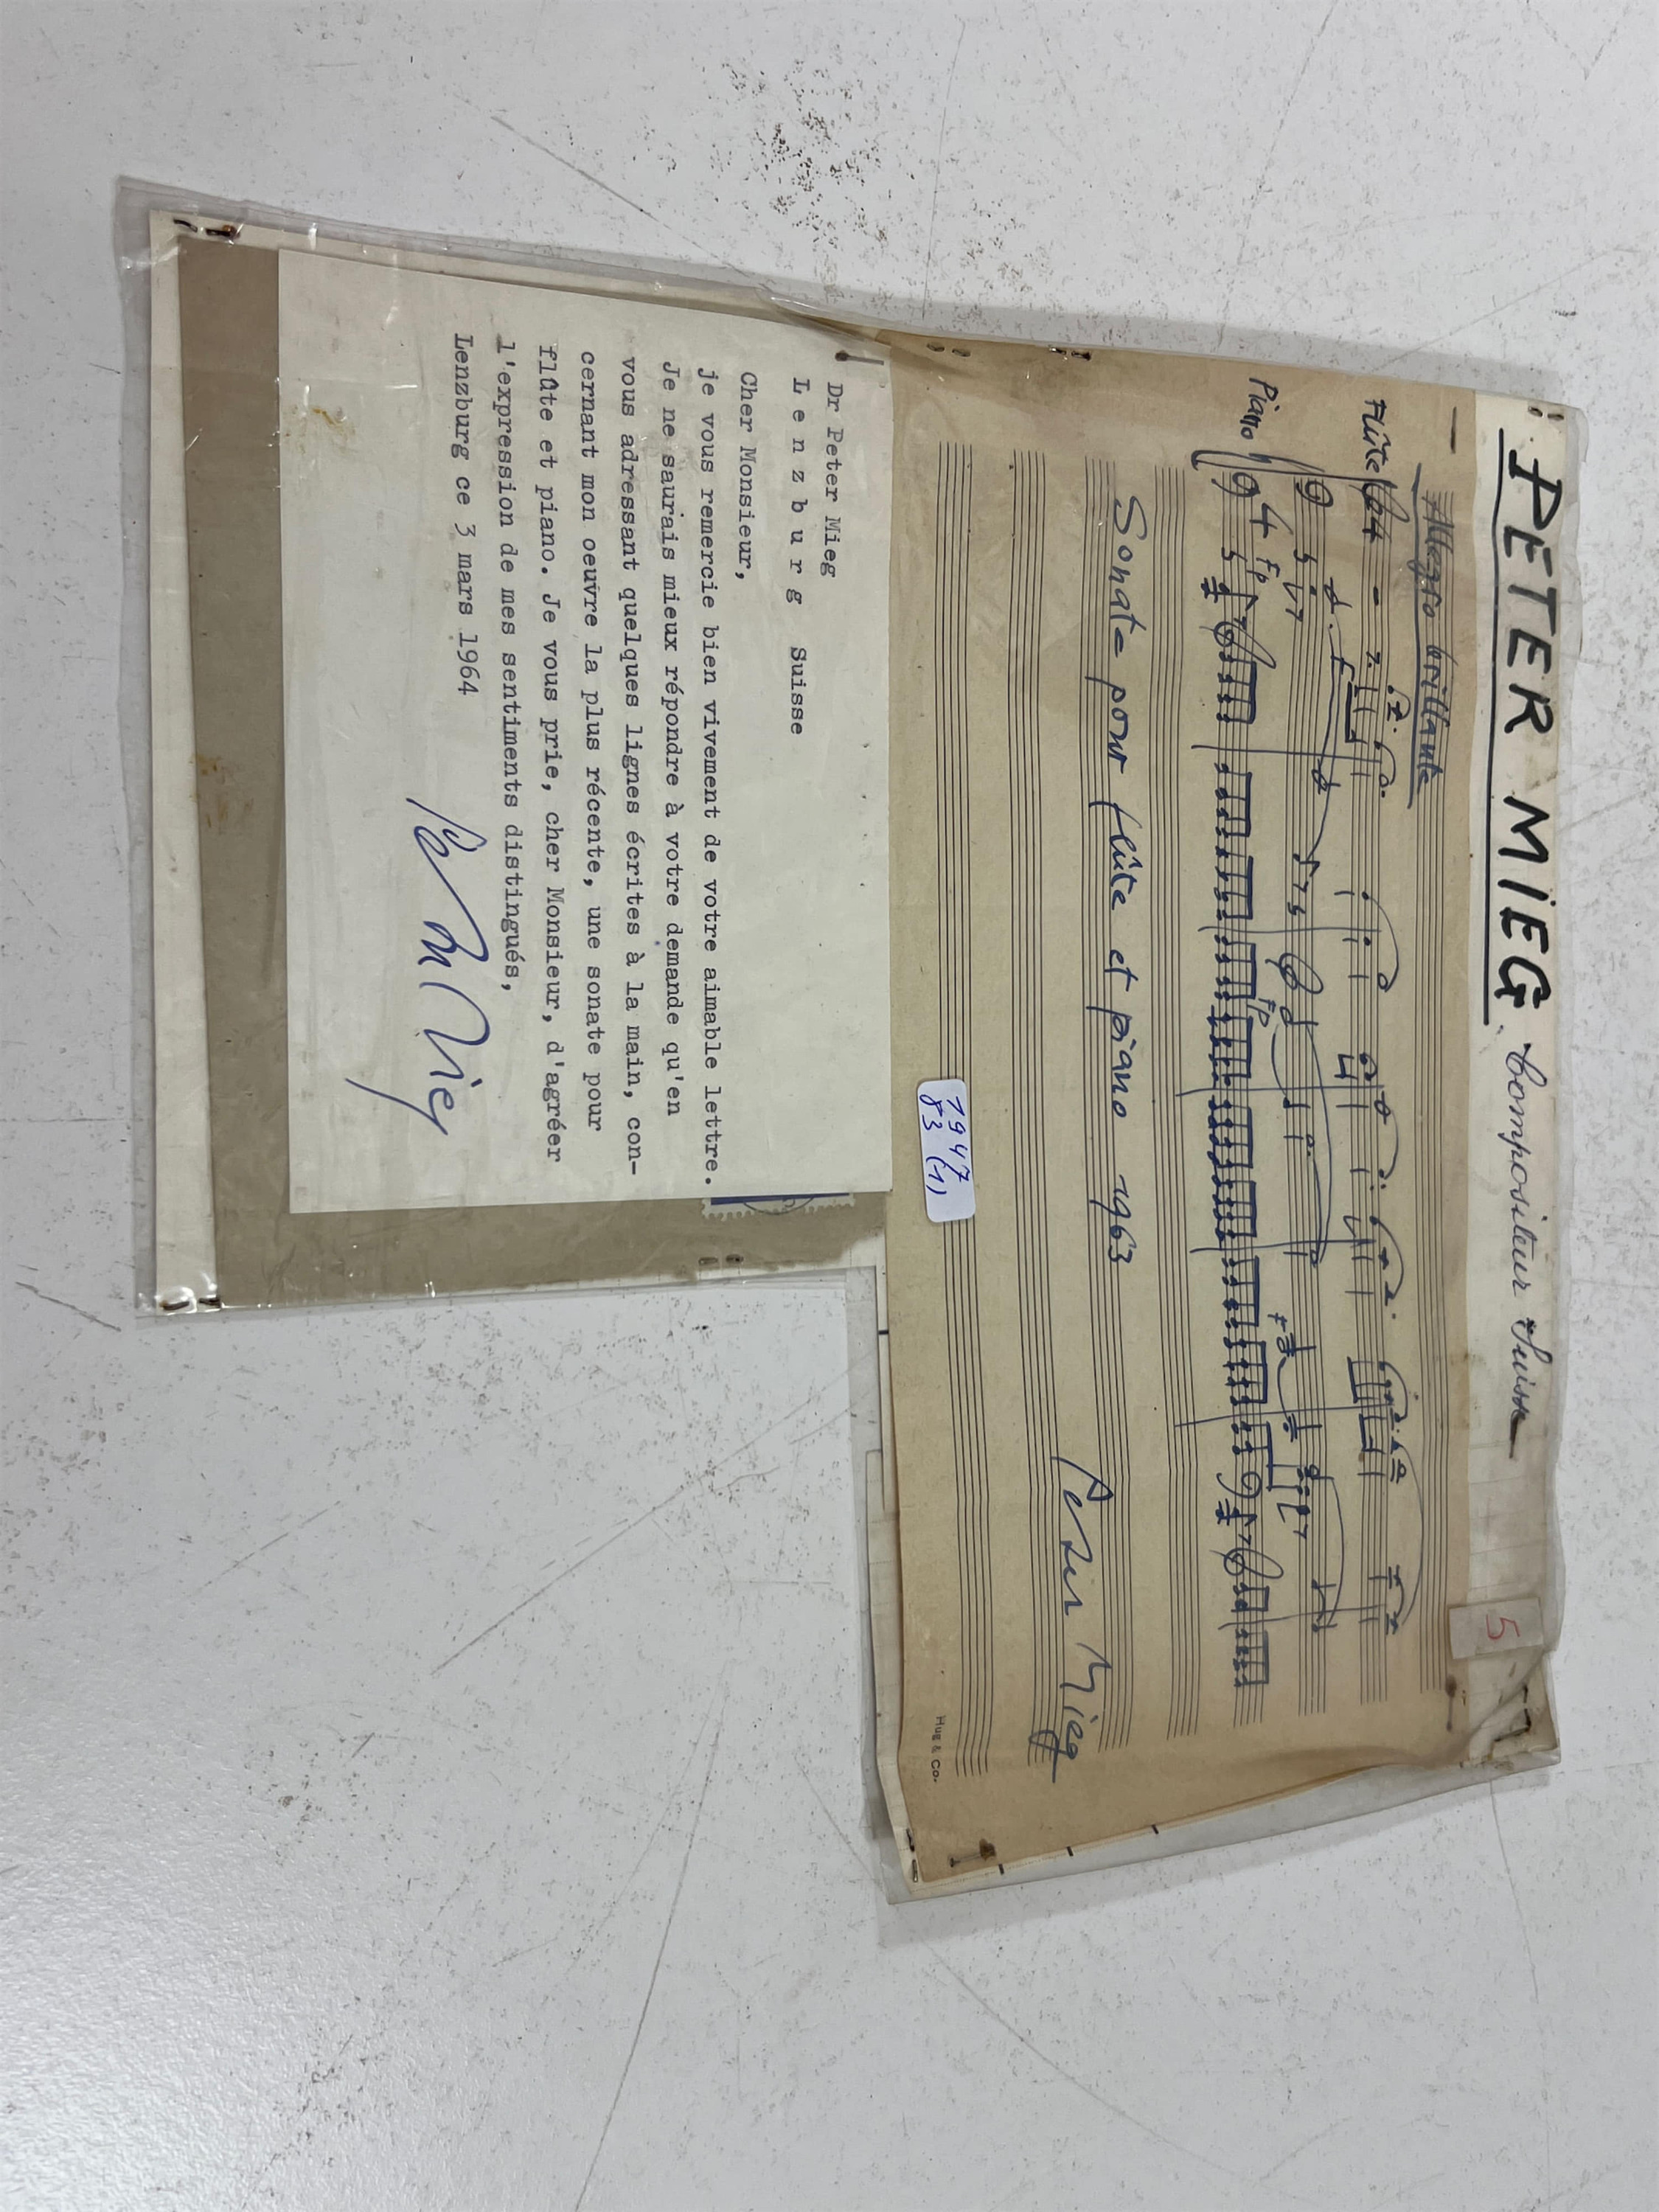 PETER MIEG. Compositeur Suisse
5
Allegro brillante
Flûte
Piano
fp
fp
f
Sonate pour flûte et piano 1963
Peter Mieg
1947
83 (1)
Hug & Co.
Dr Peter Mieg
L e n z b u r g   Suisse
Cher Monsieur,
je vous remercie bien vivement de votre aimable lettre.
Je ne saurais mieux répondre à votre demande qu'en
vous adressant quelques lignes écrites à la main, con-
cernant mon oeuvre la plus récente, une sonate pour
flûte et piano. Je vous prie, cher Monsieur, d'agréer
l'expression de mes sentiments distingués,
Lenzburg ce 3 mars 1964